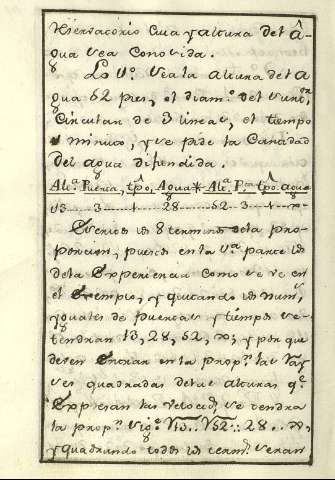 Hservatorio Cuia y altura del A-
gua sea Conosida.
Lo 1º. sea la altura del A
gua 52 pies, el diamº. del
Circular de 3 lineas, el tiempo
1 minuto, y se pide la Cantidad
del agua difundida.
Altª. Puerta, tpô. Agua * Altª. Pta. tpô. agua
13 3 1 28 52 3 1 x
terminos de la pro-
porcion, puestos en la 1ª parte los
de la Experiencia Como se ve en
el Exemplo, y quitando los numˢ.
yguales de puertas y tiempos se
tendran 13, 28, 52, x; y por que
deven Entrar en la propⁿ. las Ray-
ses quadradas de las alturas qe.
Expresan las velocid. se tendra
la propⁿ. sigᵉ √13.. √52 :: 28 .. x,
y quadrando todos los term.ˢ seran